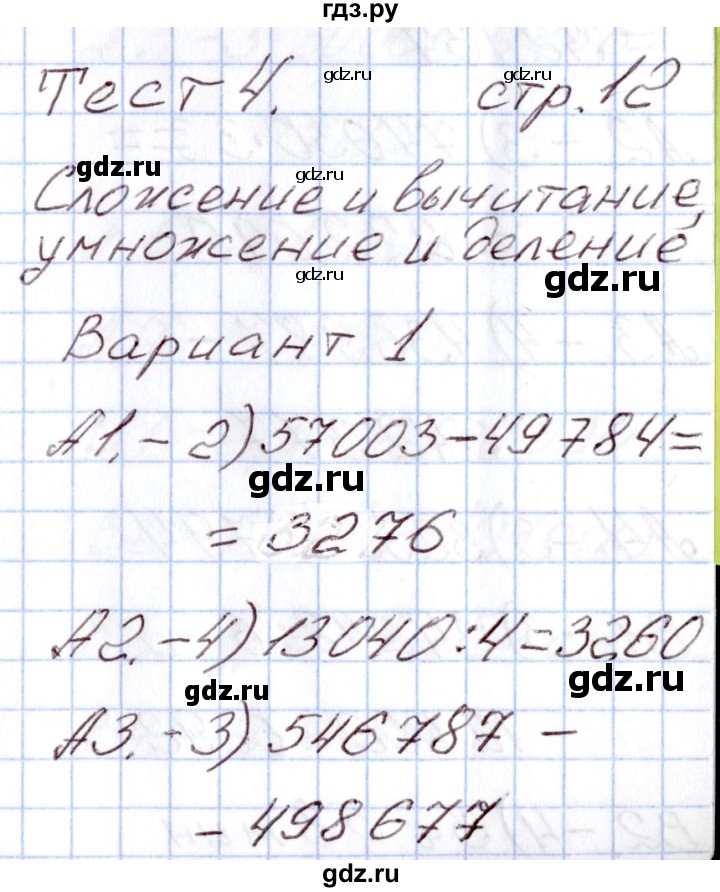 гдз.ру
Тест 4. стр. 12
gdz.ru
gdz.ru
gdz.ru
gdz.ru
Сложение и вычитание,
умножение и деление
gdz.ru
gdz.ru
Вариант 1
А1. - 2) 57003 - 49784 =
gdz.ru
= 3276
А2. - 4) 13040 : 4 = 3260
gdz.ru
gdz.ru
А3. - 3) 546787 -
- 498677
gdz.ru